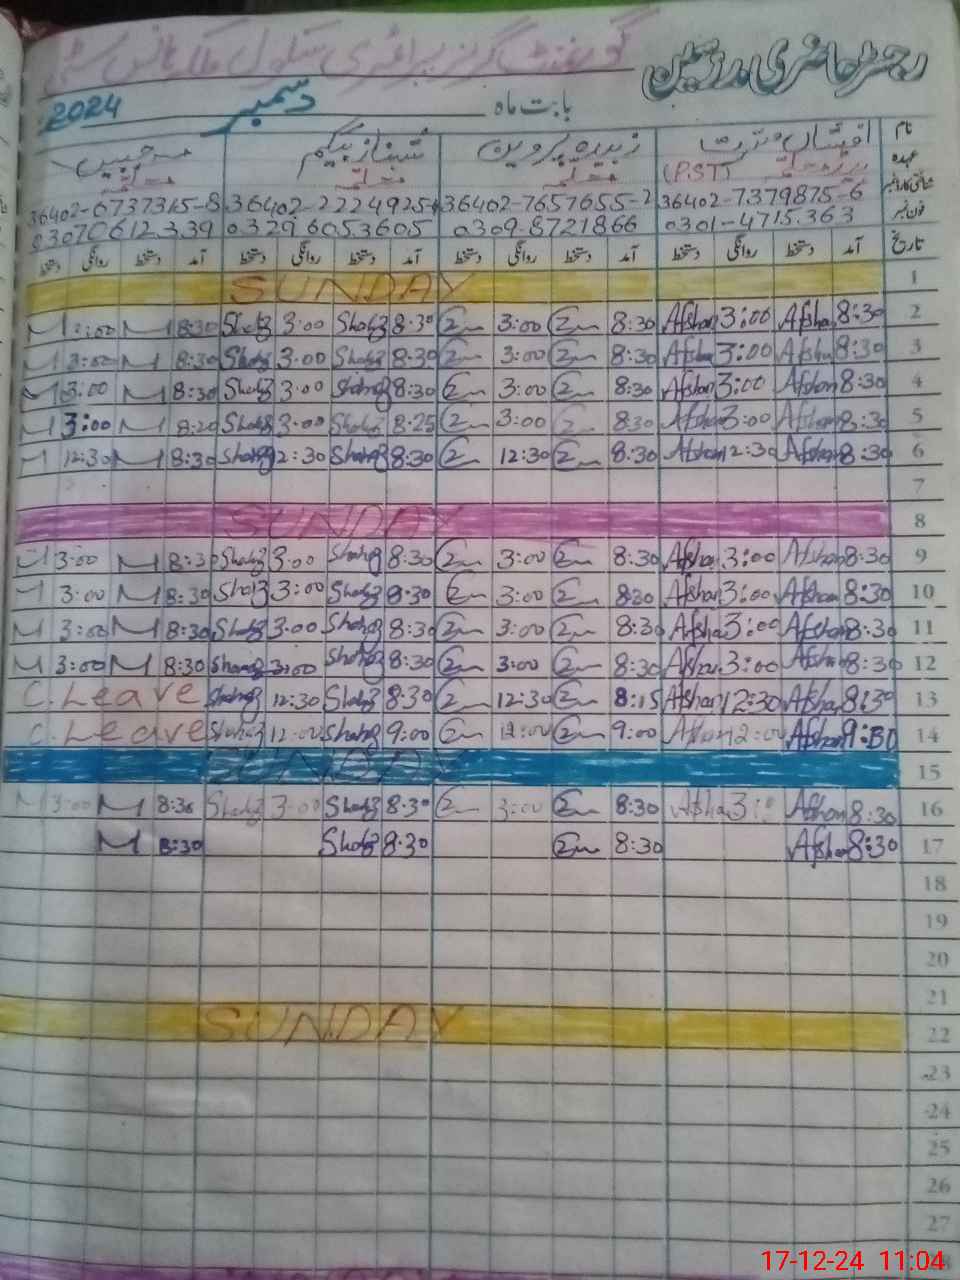 رجسٹر حاضری مدرسین گورنمنٹ گرلز پرائمری سکول
بابت ماہ دسمبر 2024
نام افشاں نصرت زبیدہ پروین شہناز بیگم مہ جبیں
عہدہ (PST) معلمہ معلمہ معلمہ
شناختی کارڈ نمبر 36402-7379875-6 36402-7657655-2 36402-2224925- 36402-6737315-8
فون نمبر 0301-4715363 0309-8721866 0329 6053605 03070612339
تاریخ آمد دستخط روانگی دستخط آمد دستخط روانگی دستخط آمد دستخط روانگی دستخط آمد دستخط روانگی دستخط
SUNDAY 1
M 3:00 M 8:30 3:00 8:30 3:00 8:30 Afshan 3:00 Afshan 8:30 2
M 3:00 M 8:30 3:00 8:30 3:00 8:30 Afshan 3:00 Afshan 8:30 3
M 3:00 M 8:30 3:00 8:30 3:00 8:30 Afshan 3:00 Afshan 8:30 4
M 3:00 M 8:20 3:00 8:25 3:00 8:30 Afshan 3:00 Afshan 8:30 5
M 12:30 M 8:30 12:30 8:30 12:30 8:30 Afshan 12:30 Afshan 8:30 6
7
SUNDAY 8
M 3:00 M 8:30 3:00 8:30 3:00 8:30 Afshan 3:00 Afshan 8:30 9
M 3:00 M 8:30 3:00 8:30 3:00 8:30 Afshan 3:00 Afshan 8:30 10
M 3:00 M 8:30 3:00 8:30 3:00 8:30 Afshan 3:00 Afshan 8:30 11
M 3:00 M 8:30 3:00 8:30 3:00 8:30 Afshan 3:00 Afshan 8:30 12
C. Leave 12:30 8:30 12:30 8:15 Afshan 12:30 Afshan 8:30 13
C. Leave 12:00 9:00 12:00 9:00 Afshan 12:00 Afshan 14
SUNDAY 15
M 3:00 M 8:30 3:00 8:30 3:00 8:30 Afshan Afshan 8:30 16
M 8:30 8:30 8:30 Afshan 8:30 17
18
19
20
21
SUNDAY 22
23
24
25
26
27
28
17-12-24 11:04